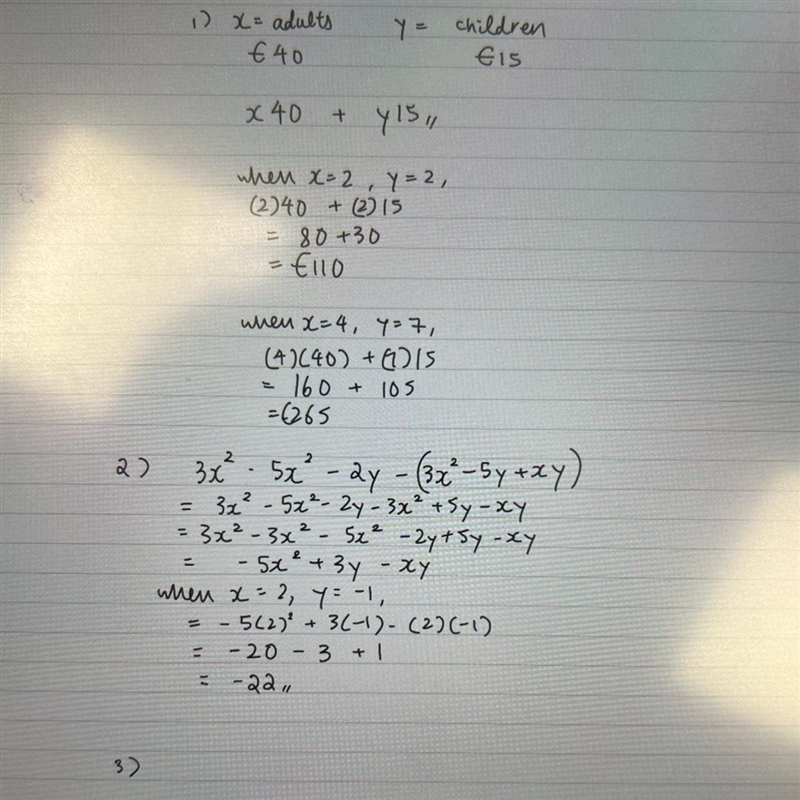 1) x = adults y = children
€40 €15
x40 + y15,,
when x=2, y=2,
(2)40 + (2)15
= 80+30
= €110
when x=4, y=7,
(4)(40) + (7)15
= 160 + 105
= €265
2) 3x² - 5x² - 2y - (3x² - 5y + xy)
= 3x² - 5x² - 2y - 3x² + 5y - xy
= 3x² - 3x² - 5x² - 2y + 5y - xy
= -5x² + 3y - xy
when x = 2, y = -1,
= -5(2)² + 3(-1) - (2)(-1)
= -20 - 3 + 1
= -22,,
3)